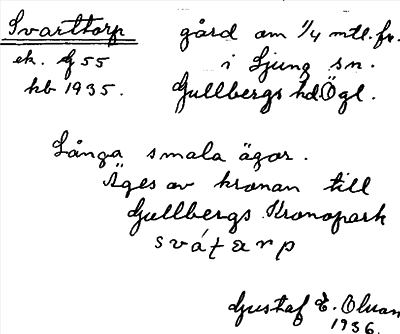 Svarttorp gård om 1/4 mtl. fr.
ek. g 55 i Ljung sn.
kb 1935. Gullbergs hd Ögl.
Långa smala ägor.
Äges av kronan till
Gullbergs Kronopark
svátarp
Gustaf E. Olsson
1936.